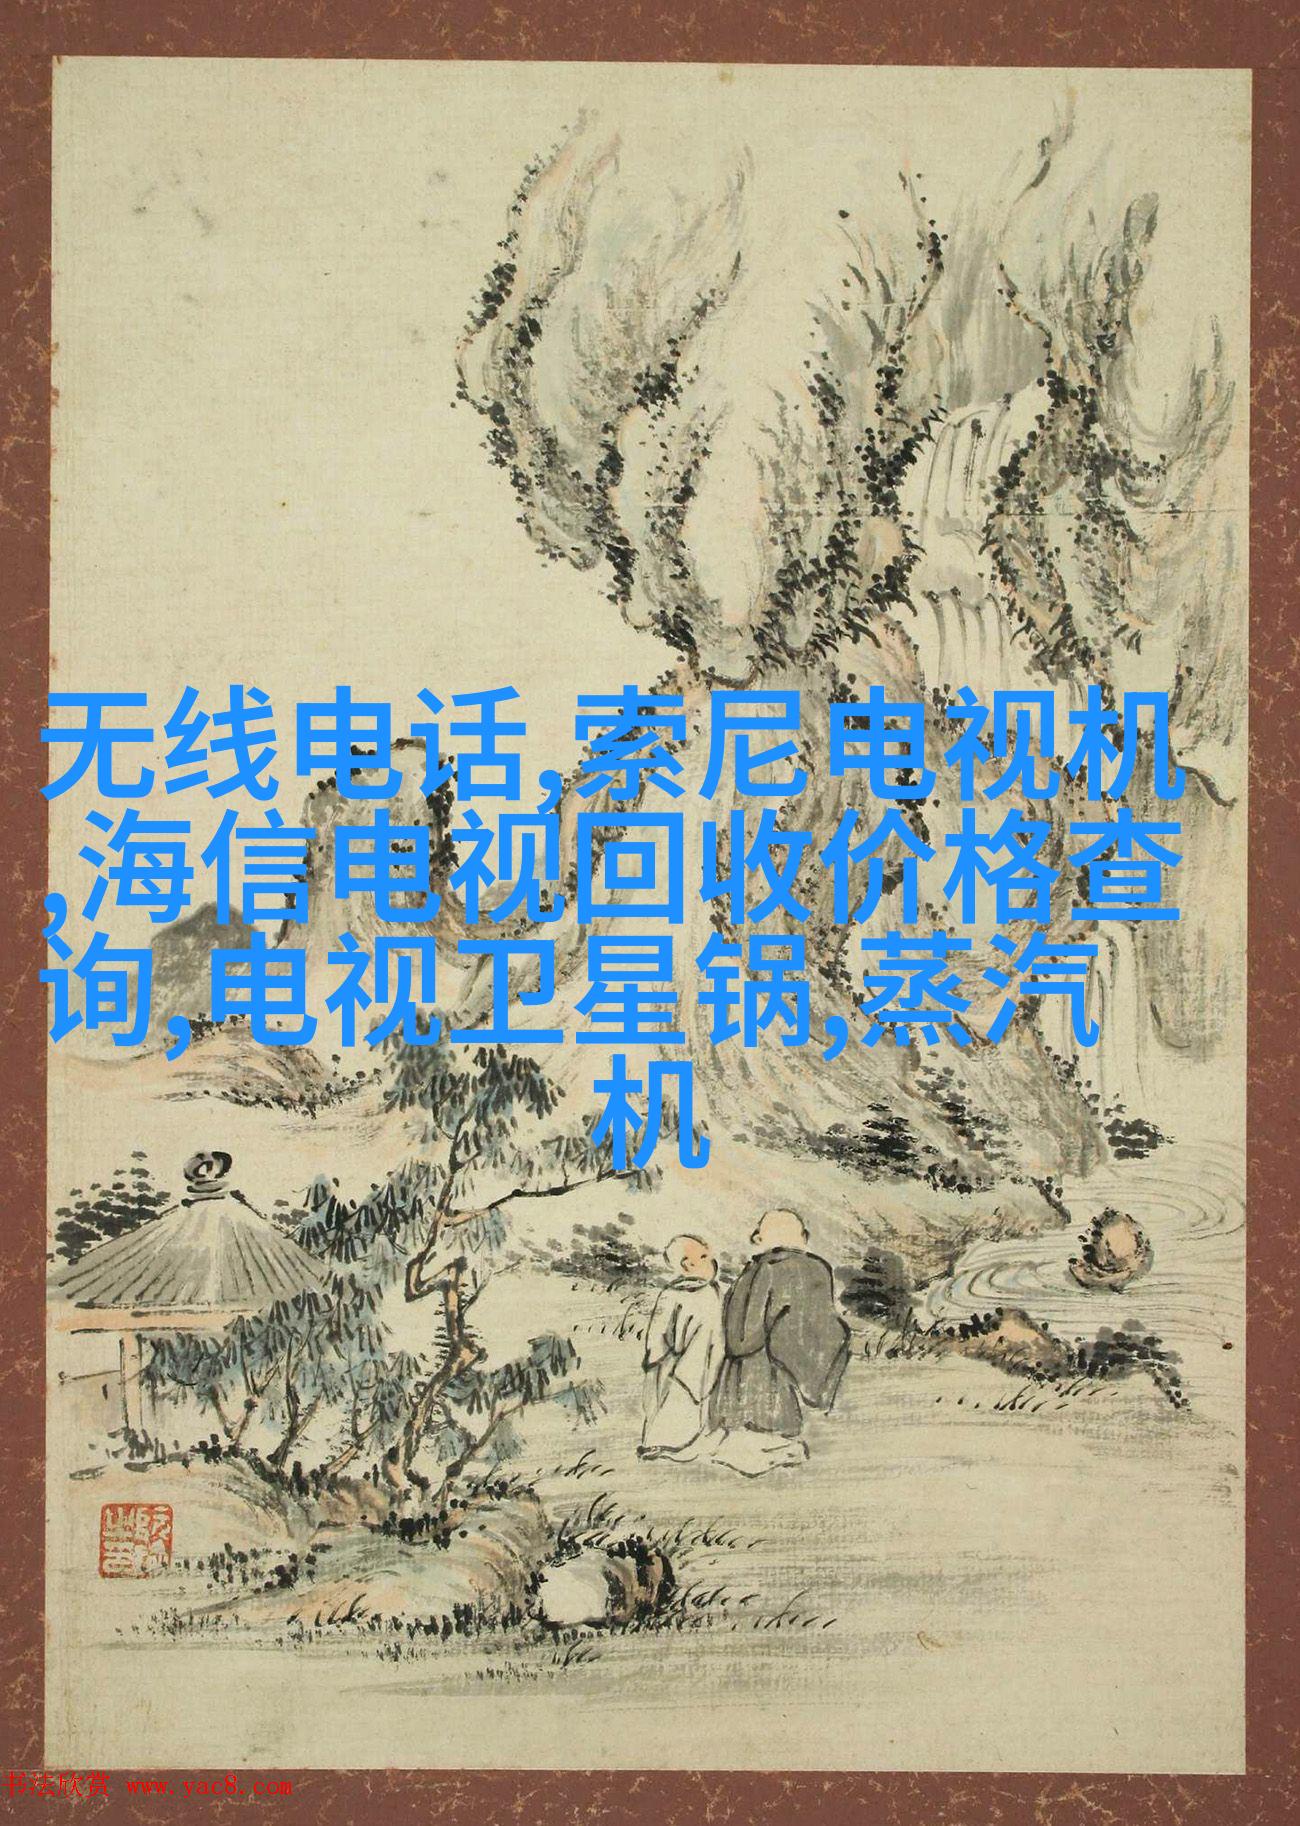 无线电话,索尼电视机
,海信电视回收价格查
询,电视卫星锅,蒸汽
机
书法欣赏 www.yac8.com